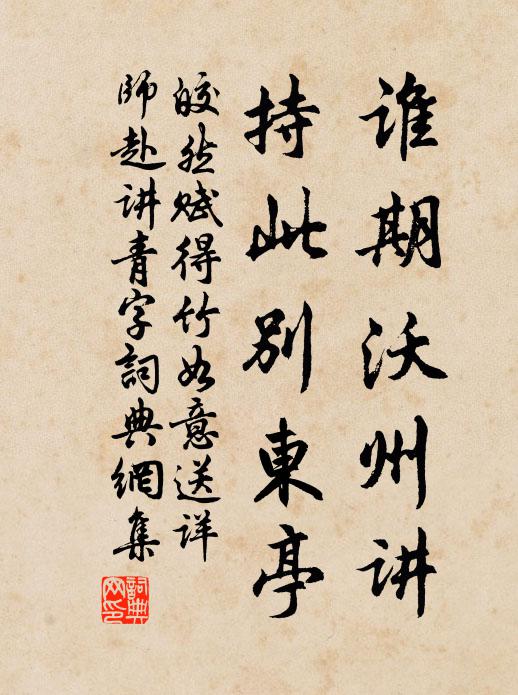 谁期沃州讲
持此别東亭
皎然赋得竹如意送详
師赴讲青字詞典網集
詞典網印